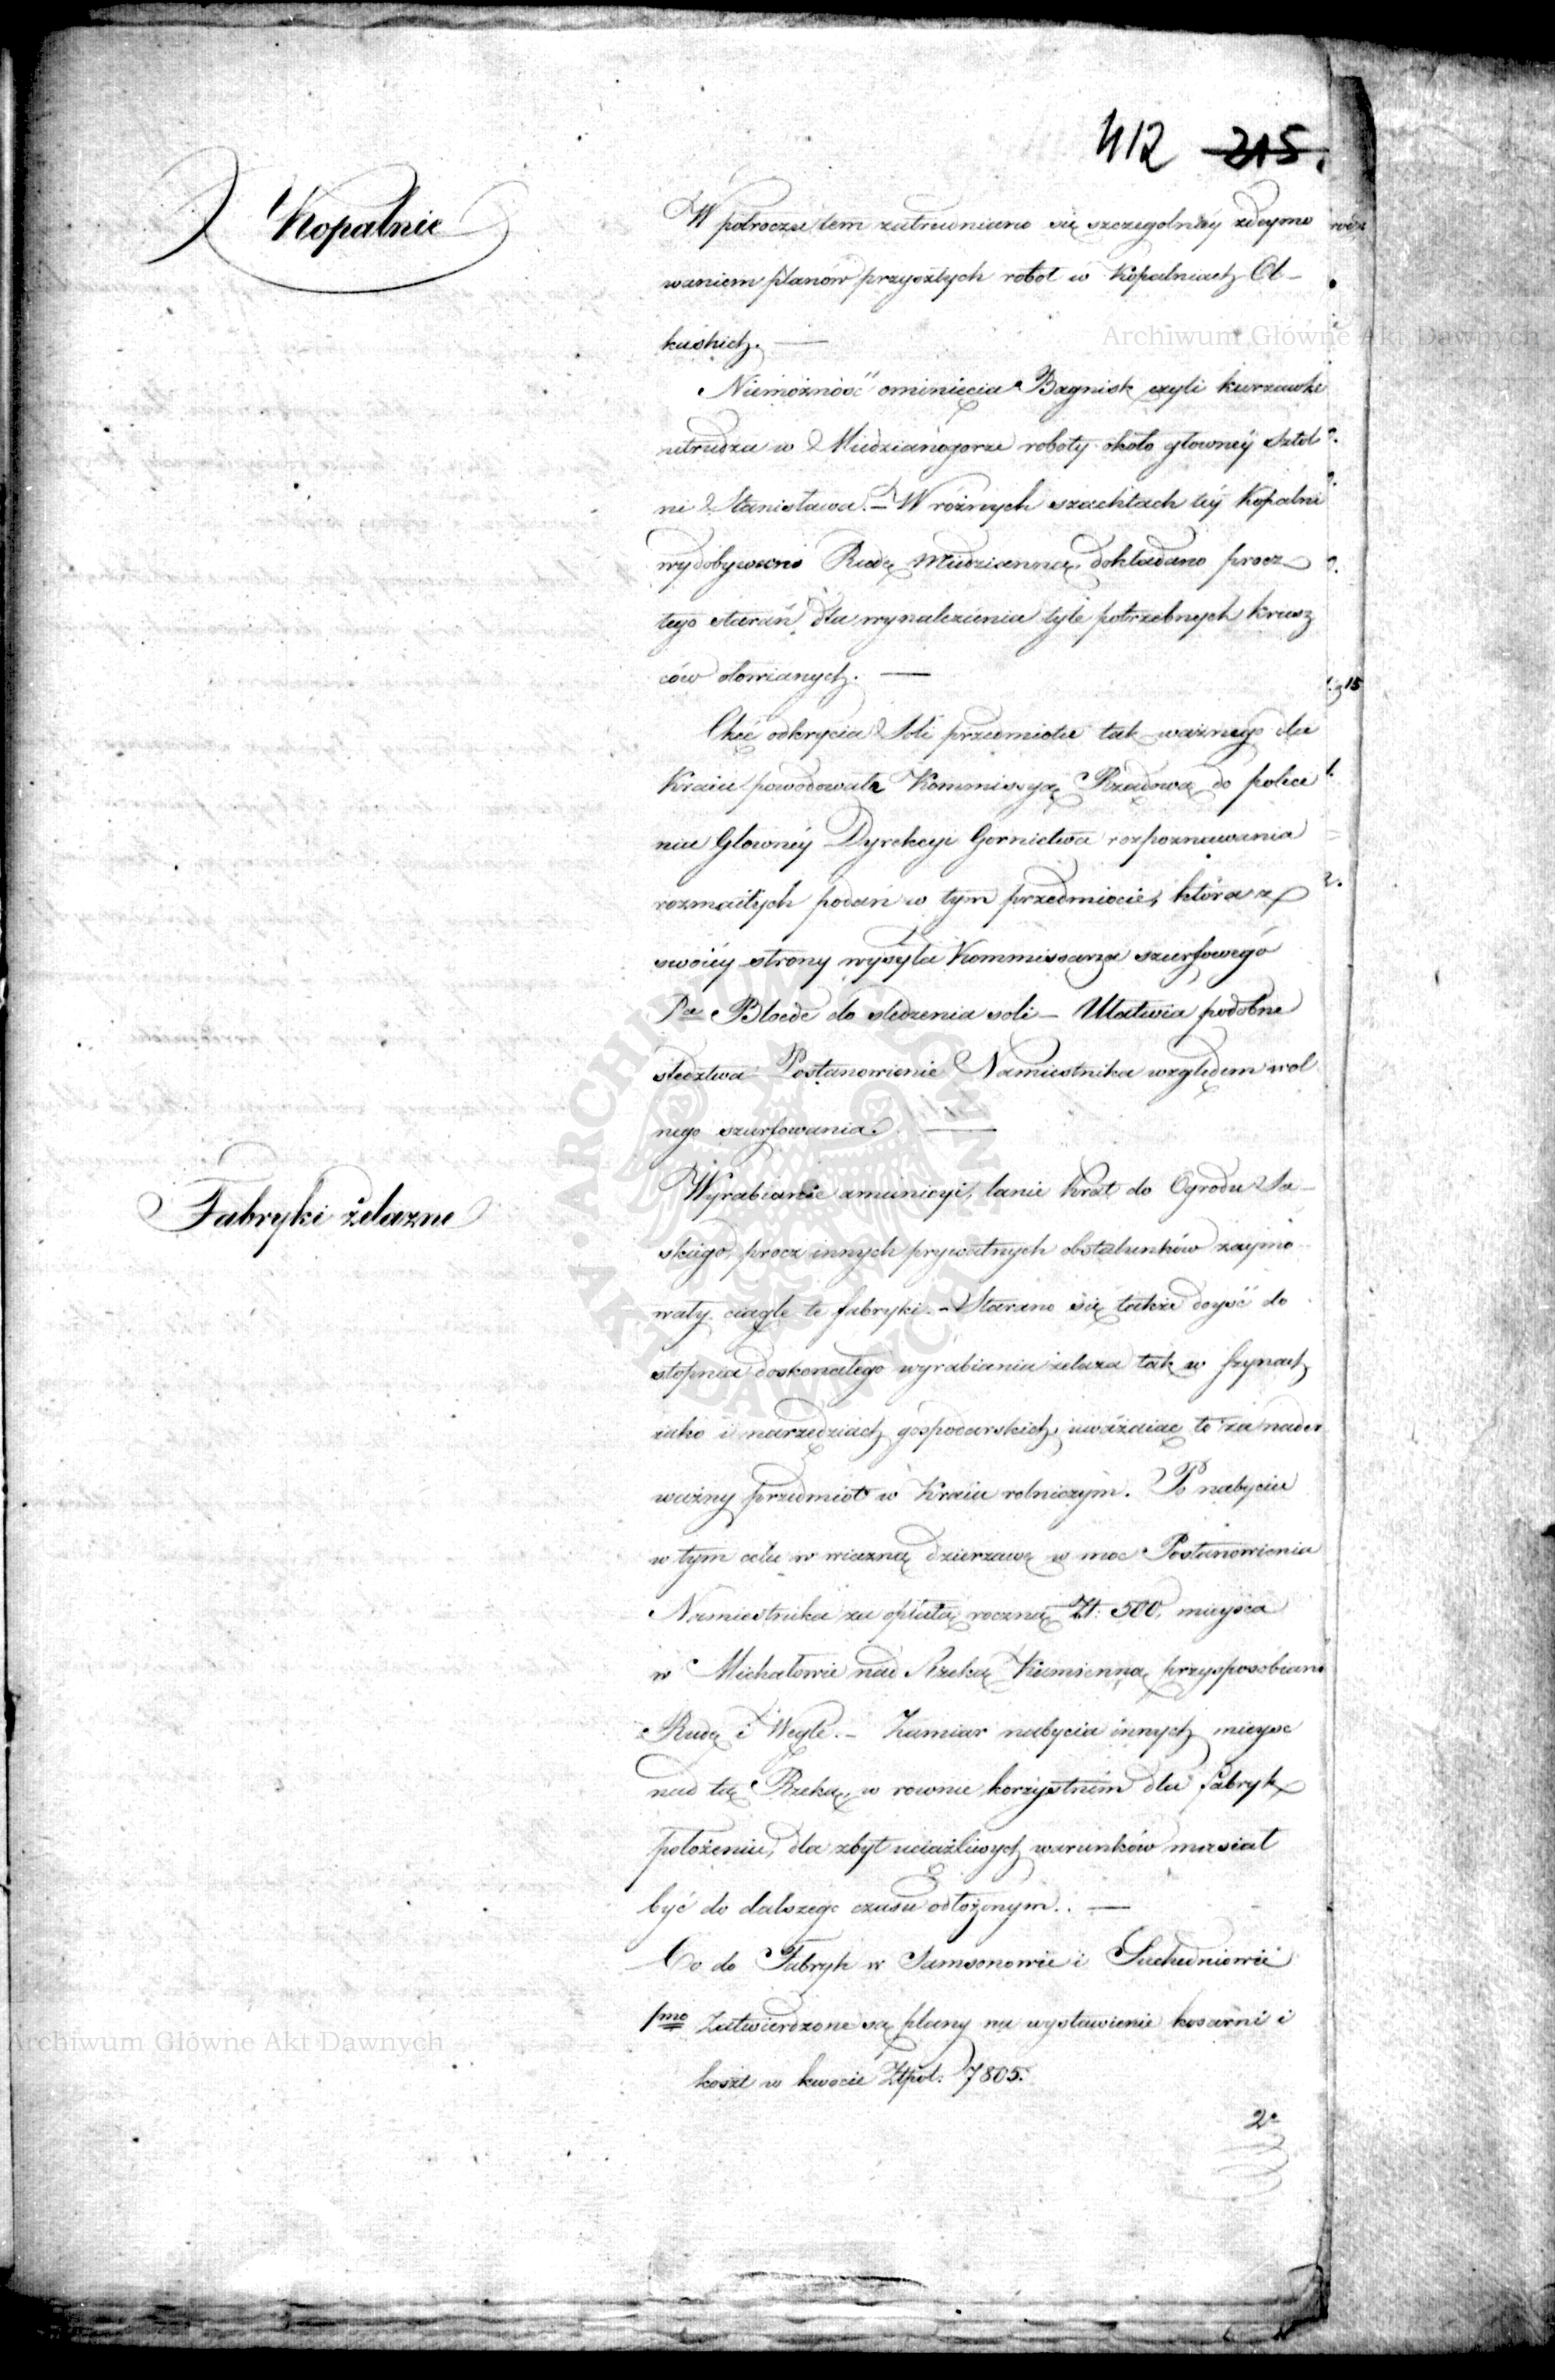 412 215.
Kopalnie
W połroczu tem zatrudniano się szczegolniéy zdeymo
waniem planów przyszłych robot w Kopalniach Ol-
kuskich. —
Niemożność ominięcia Bagnisk czyli kurzawki
utrudza w Miedzianogorze roboty około głowneÿ Sztol
ni Stanisława. – W rożnych szachtach teÿ Kopalni
wydobywano Rudę Miedzianną, dokładano procz
tego starań dla wynalezienia tyle potrzebnych krusz
ców ołowianych. —
Chęć odkrycia Soli przedmiotu tak ważnego dla
Kraiu powodowała Kommissyą Rządową do polece
nia Głownéy Dyrekcyi Gornictwa rozpoznawania
rozmaitych podań w tym przedmiocie, która z
swoiéy strony wysyła Kommissarza szurfowego
Pa Bloede do sledzenia soli – Ułatwia podobne
sledztwa Postanowienie Namiestnika względem wol
nego szurfowania. —
Fabryki żelazne
Wyrabianie amunicyi, lanie Krat do Ogrodu Sa-
skiego, procz innych prywatnych obstalunków zaymo
wały ciągle te fabryki. – Starano się także doyść do
stopnia doskonałego wyrabiania żelaza tak w szynach
iako i narzędziach gospodarskich, uważaiąc to za nader
ważny przedmiot w Kraiu rolniczym. Po nabyciu
w tym celu w wieczną dzierzawę w moc Postanowienia
Namiestnika za opłatą roczną Zł: 500, mieysca
w Michałowie nad Rzeką Kamienną przysposobiano
Rudę i Węgle. – Zamiar nabycia innych mieysc
nad tą Rzeką, w rownie korzystném dla fabryk
położeniu, dla zbyt uciążliwych warunków musiał
być do dalszego czasu odłożonym. . —
Co do Fabryk w Samsonowie i Suchedniowie
1mo Zatwierdzone są plany na wystawienie kosarni i
koszt w kwocie Złpol: 7805.
2e